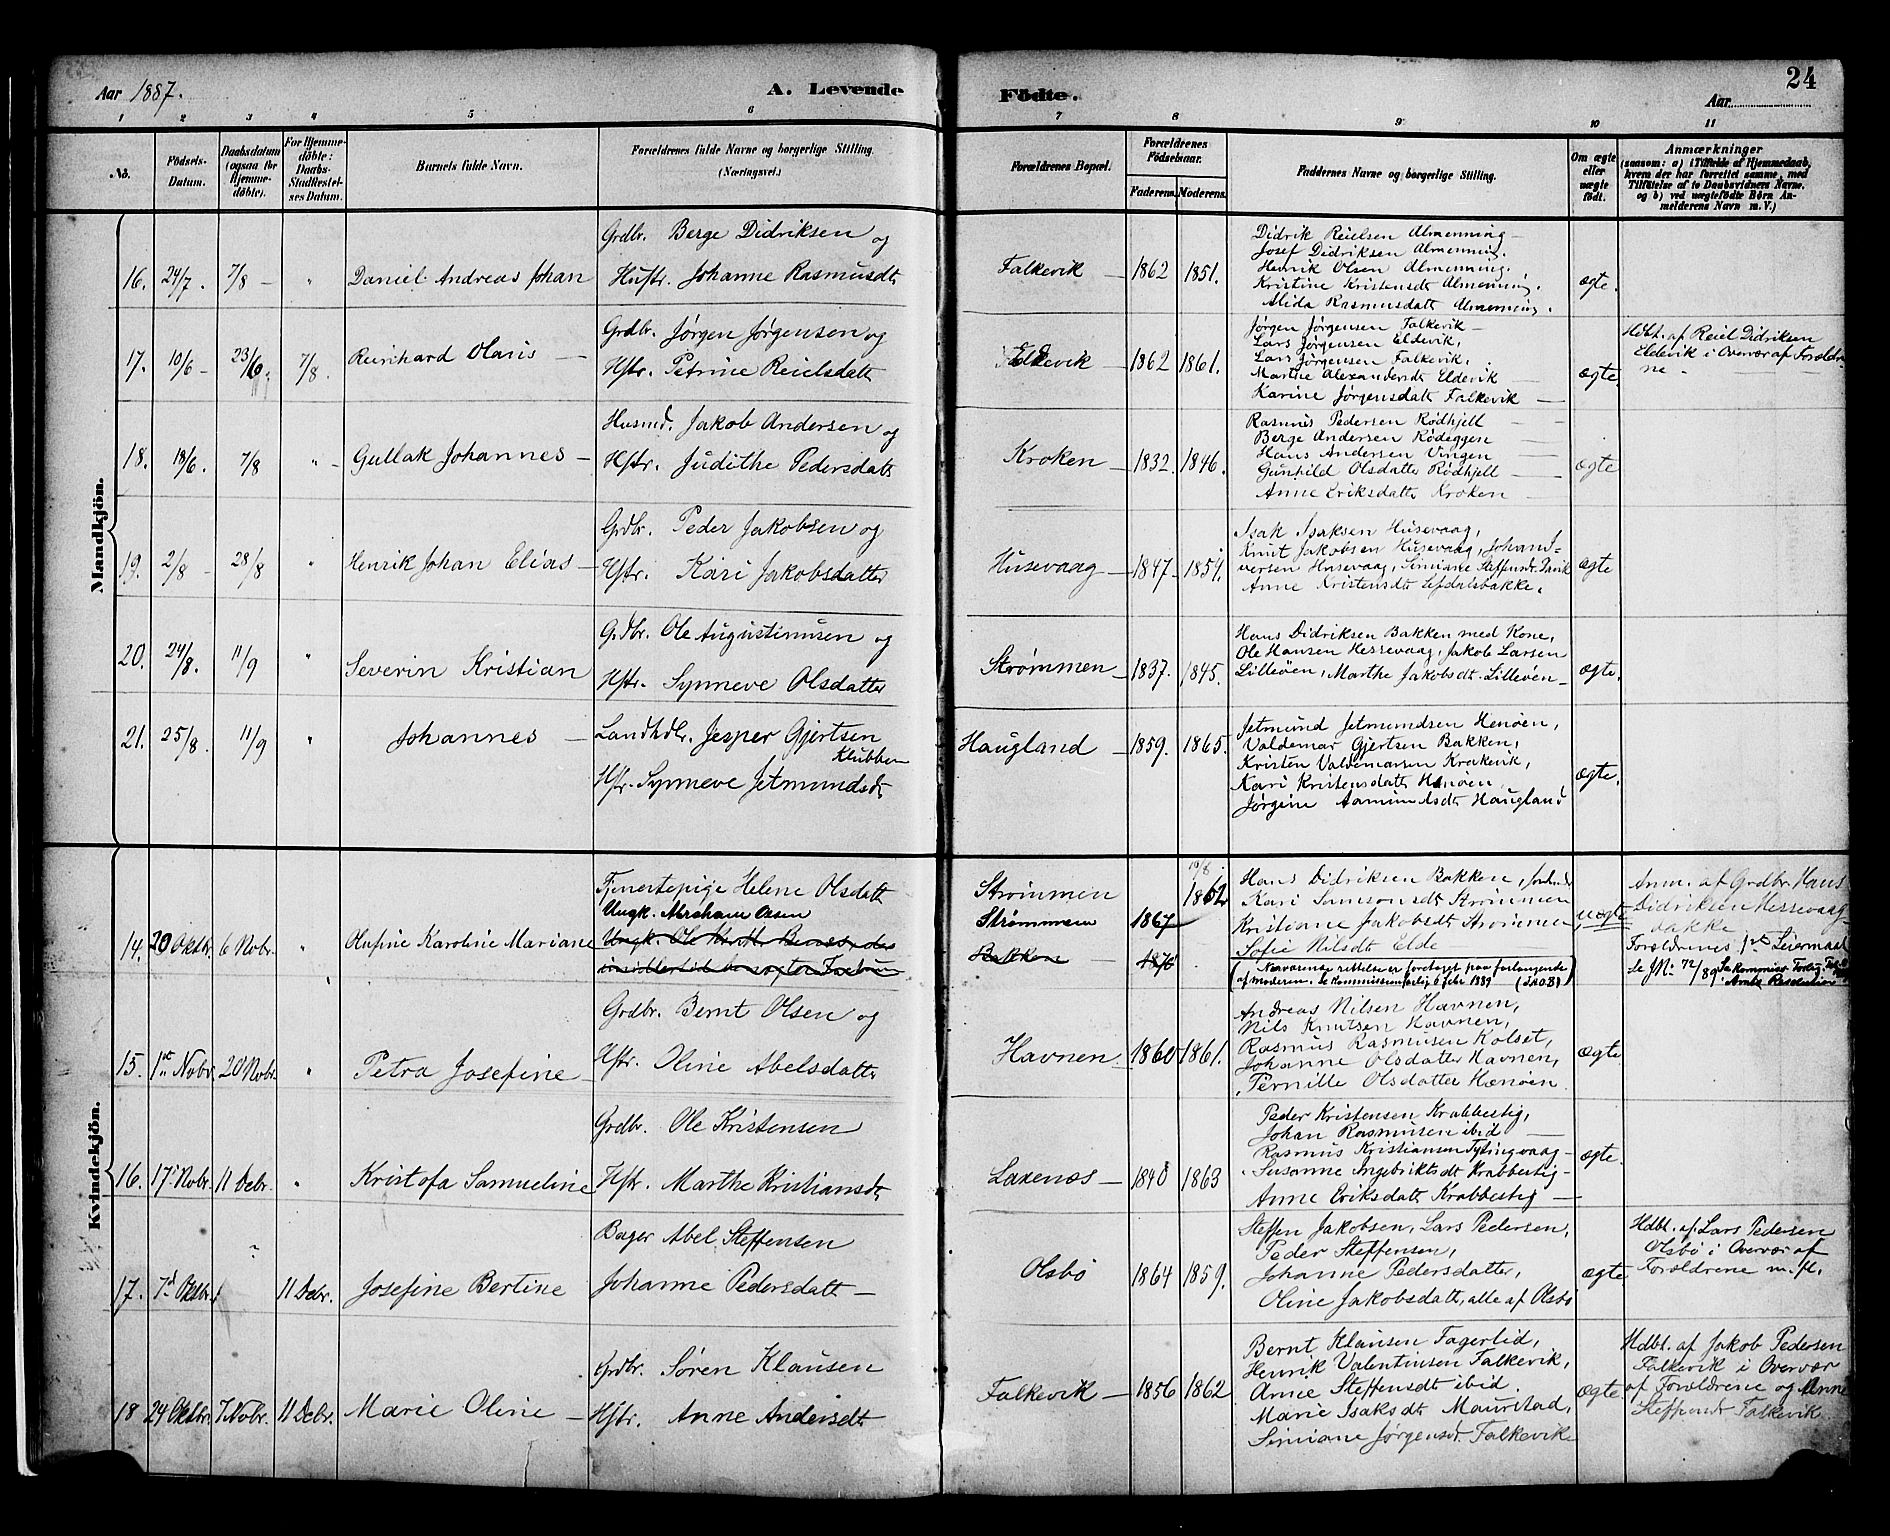 Aar 1887.
A. Levende
Födte.
24
Aar
1
2
3
4
5
6
7
8
9
10
11
No.
Födsels-
Datum.
Daabsdatum
(ogsaa for
Hjemme-
döbte).
For Hjemme-
döbte:
Daabs-
Stadfæstel-
ses Datum.
Barnets fulde Navn.
Forældrenes fulde Navne og borgerlige Stilling
(Næringsvei.)
Forældrenes Bopæl.
Forældrenes
Födselsaar.
Faderens.
Moderens.
Faddernes Navne og borgerlige Stilling.
Om ægte
eller
uægte
födt.
Anmærkninger
(saasom: a) i Tilfælde af Hjemmedaab,
hvem der har forrettet samme, med
Tilföielse af to Daabsvidners Navne,
og b) ved uægtefödte Börn An-
melderens Navn m. V.)
Mandkjön.
16. 24/7. 7/8 — " Daniel Andreas Johan
Grdbr. Berge Didriksen og
Hustr. Johanne Rasmusdtr
Falkevik — 1862 1851.
Didrik Reielsen Almenning —
Josef Didriksen Almenning.
Henrik Olsen Almenning.
Kristine Kristensdt Almenning.
Alida Rasmusdatt Almenning.
ægte.
17. 10/6 — 23/6. 7/8. Reinhard Olaus —
Grdbr. Jørgen Jørgensen og
Hstr. Petrine Reielsdatt
Eldevik 1862 1861.
Jørgen Jørgensen Falkevik —
Lars Jørgensen Eldevik,
Lars Jørgensen Falkevik,
Marthe Alexandersdt Eldevik
Karine Jørgensdatt Falkevik —
ægte
Hdbt. af Reiel Didriksen
Eldevik i Overvær af Forældre-
ne —
18. 18/6. 7/8 " — Gullak Johannes —
Husmd. Jakob Andersen og
Hstr. Judithe Pedersdatt
Kroken — 1832. 1846.
Rasmus Pedersen Rødhjell —
Berge Andersen Rødeggen —
Hans Andersen Vingen —
Gunhild Olsdatter Rødhjell —
Anne Eriksdatter Kroken —
ægte
19. 2/8 — 28/8 " Henrik Johan Elias —
Grdbr. Peder Jakobsen og
Hstr. Kari Jakobsdatter
Husevaag — 1847. 1854.
Isak Isaksen Husevaag,
Knut Jakobsen Husevaag, Johan
Husevaag, Simiane Steffensdt
Anne Kristensdt
ægte
20. 24/8. 11/9 " Severin Kristian
Grdbr. Ole Augustinusen og
Hstr. Synneve Olsdatter
Strømmen — 1837. 1845.
Hans Didriksen Bakken med Kone,
Ole Hansen Hessevaag, Jakob Larsen
Lilleöen, Marthe Jakobsdt. Lilleöen —
ægte.
21. 25/8. 11/9 " Johannes —
Landhdlr. Jesper Gjertsen
Klubben
Hstr. Synneve Jetmundsdt
Haugland — 1859. 1865.
Jetmund Jetmundsen Henöen,
Valdemar Gjertsen Bakken,
Kristen Valdemarsen Krakevik,
Kari Kristensdatt Henöen
Jørgine Aamundsdt Haugland
ægte.
Kvindekjön.
14. 20 Oktbr. 6 Novbr. " Olufine Karoline Mariane
Tjenestepige Helene Olsdatt
Ungk. Abraham Olsen
Strömmen
Strömmen
Bakken
1867
1870
1862
Hans Didriksen Bakken,
Kari Samsonsdt Strömmen
Kristiane Jakobsdt Strömmen
Sofie Nilsdt Elde —
(Nærværende rettelse er foretaget paa forlangende
af moderen. Se Kommissionsforlig 6 Febr 1889
uægte
Anm. af Grdbr. Hans
Didriksen Hessevaag
bakke
Forældrenes 1ste Leiermaal
Se J.No. 72/89.
15. 1ste Novbr. 20 Novbr. " Petra Josefine —
Grdbr. Bernt Olsen og
Hstr. Oline Abelsdatter
Havnen 1860 1861.
Andreas Nilsen Havnen,
Nils Knutsen Havnen,
Rasmus Rasmusen Kolset,
Johanne Olsdatter Havnen,
Pernille Olsdatter Henöen.
ægte
16. 17. Novbr. 11 Debr. " Kristofa Samueline
Grdbr. Ole Kristensen
Hstr. Marthe Kristiansdt
Laxenæs — 1840 1863
Peder Kristensen Krabbestig,
Johan Rasmusen ibid —
Rasmus Kristiansen Tytingvaag —
Susanne Ingebriktsdt Krabbestig —
Anne Eriksdatt Krabbestig —
ægte.
17. 7d Oktbr. " 11 Debr. Josefine Bertine
Bager Abel Steffensen
Johanne Pedersdatt —
Olsbö 1864 1859.
Steffen Jakobsen, Lars Pedersen,
Peder Steffensen,
Johanne Pedersdatter,
Oline Jakobsdatt, alle af Olsbö
ægte
Hdbt. af Lars Pedersen
Olsbö i Overvær af
Forældrene m. fl.
18 24 Oktbr. 7 Novbr. 11 Debr. Marie Oline —
Grdbr. Sören Klausen
Hstr. Anne Andersdt
Falkevik — 1856 1862
Bernt Klausen Fagerlid,
Henrik Valentinsen Falkevik,
Anne Steffensdt ibid.
Marie Isaksdt Maurstad,
Simiane Jørgensd. Falkevik
ægte
Hdbt. af Jakob Pedersen
Falkevik i Overvær
af Forældrene og Anne
Steffensdt Falkevik